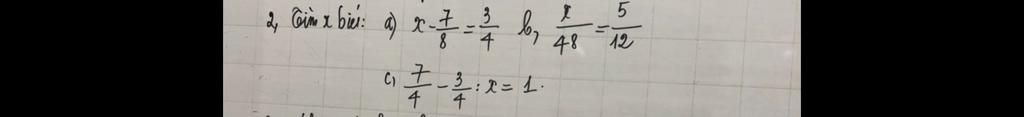 2, Tìm x biết: a) x - 7/8 = 3/4 b, x/48 = 5/12
c, 7/4 - 3/4 : x = 1.